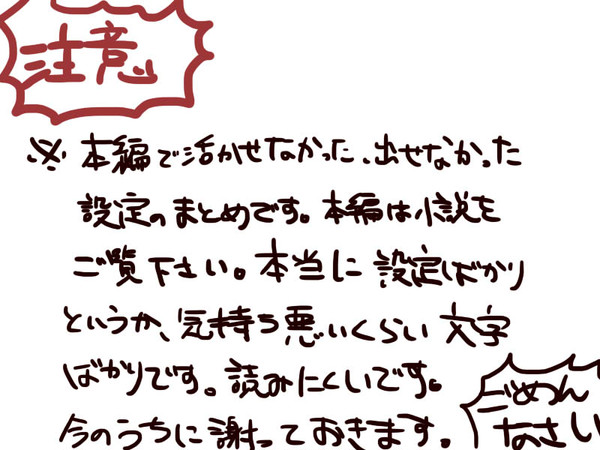 注意
※本編で活かせなかった、出せなかった
設定のまとめです。本編は小説を
ご覧下さい。本当に設定ばかり
というか、気持ち悪いくらい文字
ばかりです。読みにくいです。
今のうちに謝っておきます。
ごめん
なさい